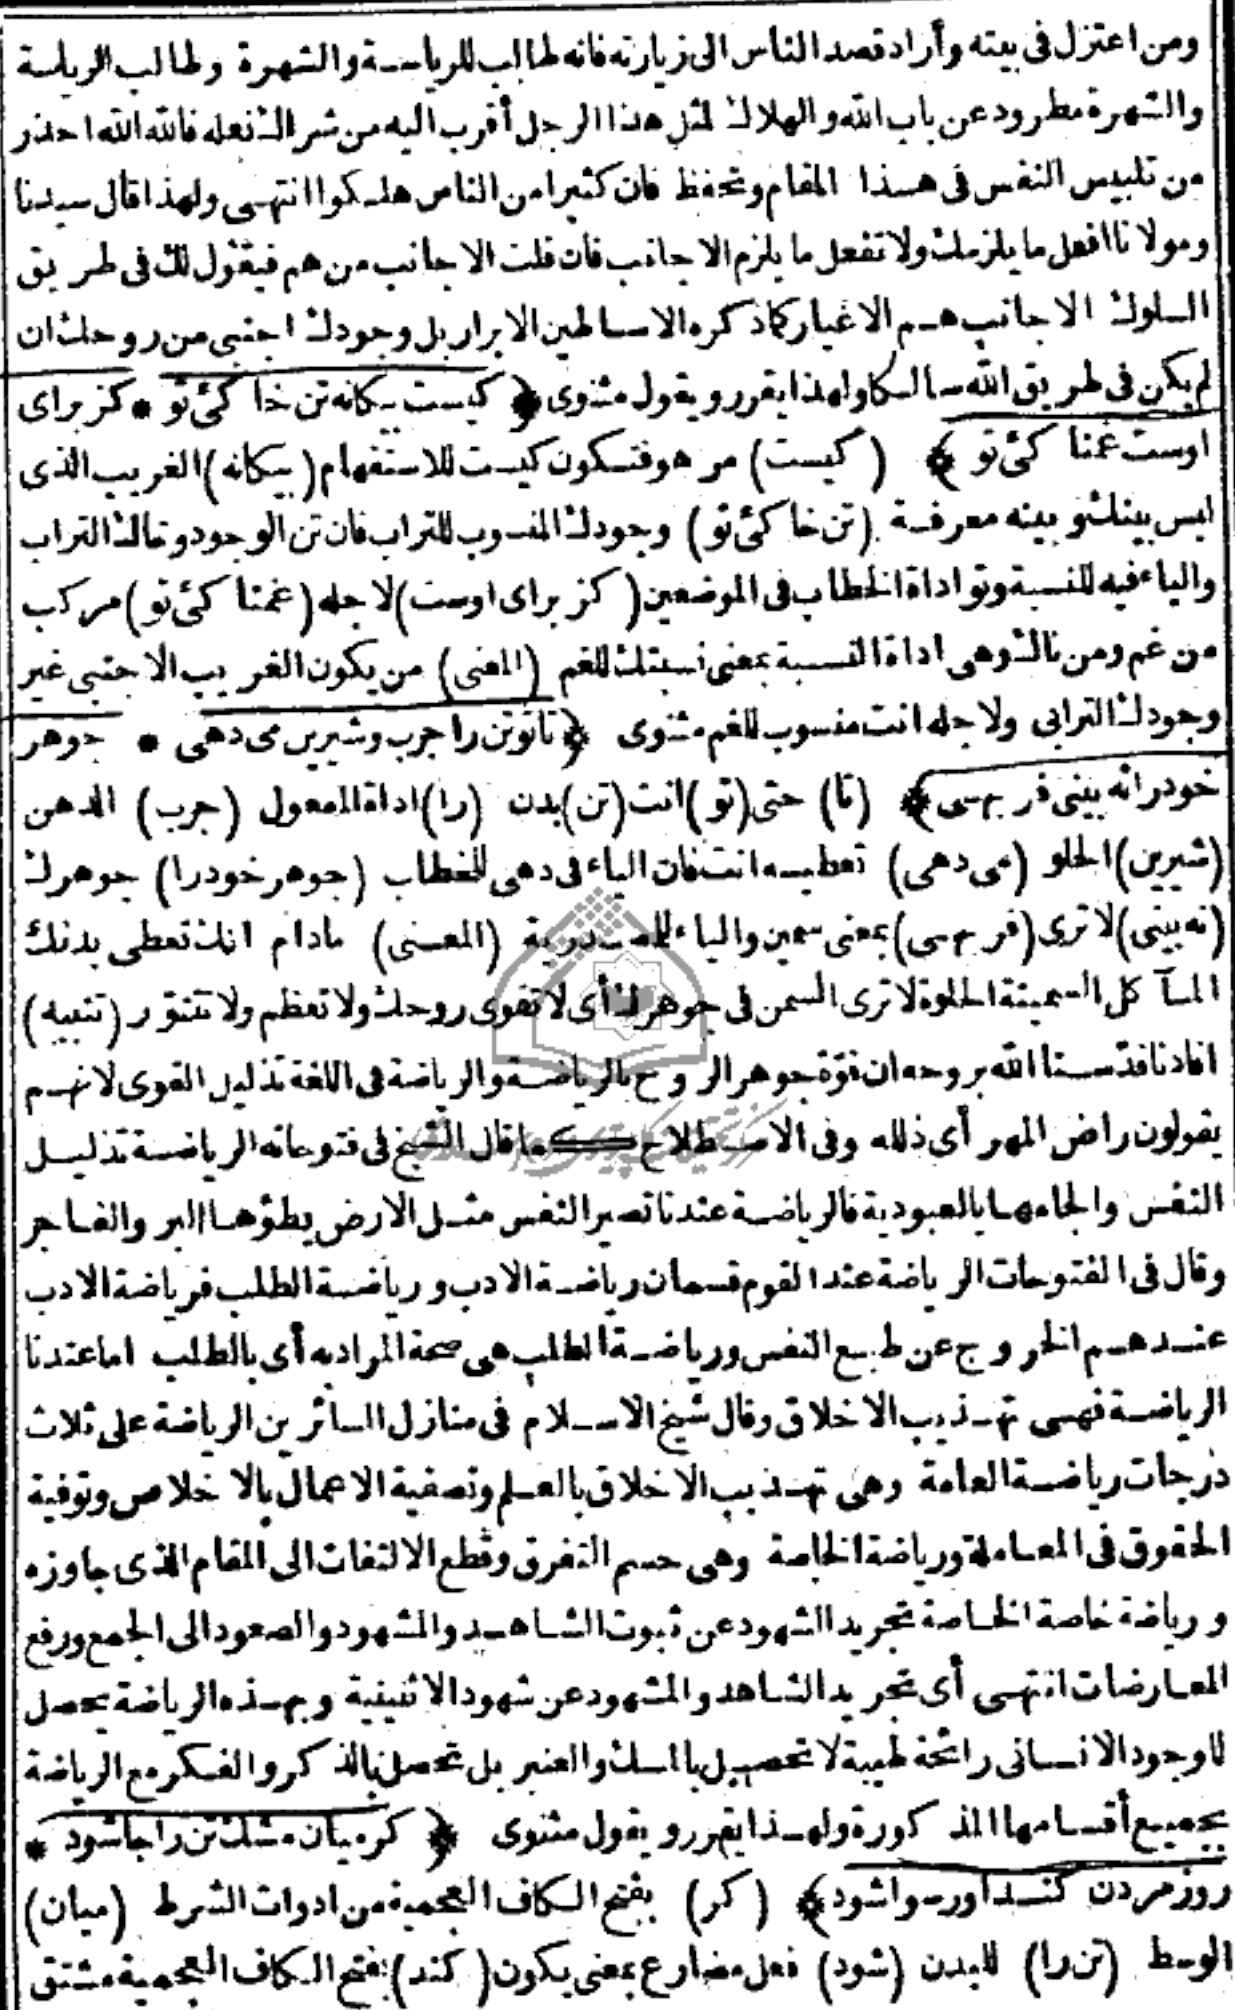 ومن اعتزل فى بيته وأراد قصد الناس الى زيارته فانه طالب للرياسة والشهرة وطالب الرياسة
والشهرة مطرود عن باب الله والهلاك لمثل هذا الرجل أقرب اليه من شراك نعله فالله الله احذر
من تلبيس النفس فى هذا المقام وتحفظ فان كثيرا من الناس هلكوا انتهى ولهذا قال سيدنا
ومولانا افعل ما يلزمك ولا تفعل ما يلزم الاجانب فان قلت الاجانب من هم فيقول لك فى طريق
السلوك الاجانب هم الاغيار كما ذكره الاساطين الابرار بل وجودك اجنبى من روحك ان
لم يكن فى طريق الله سالكا ولهذا يقرر ويقول مثنوى ﴿ كيست بيكانه تن خاكئ تو * كز براى
اوست غمنا كئ تو ﴾ (كيست) مر هو فتكون كيست للاستفهام (بيكانه) الغريب الذى
ليس بينك وبينه معرفة (تن خاكئ تو) وجودك المنسوب للتراب فان تن الوجود وخاك التراب
والياء فيه للنسبة وتو اداة الخطاب فى الموضعين (كز براى اوست) لاجله (غمنا كئ تو) مركب
من غم ومن ناك وهى اداة النسبة بمعنى نسبتك للغم (المعنى) من يكون الغريب الاجنبى غير
وجودك الترابى ولاجله انت منسوب للغم مثنوى ﴿ تا تو تن را جرب وشيرين مى دهى * جوهر
خودرا نه بينى فربهى ﴾ (تا) حتى (تو) انت (تن) بدن (را) اداة المفعول (جرب) الدهن
(شيرين) الحلو (مى دهى) تعطيه انت فان الياء فى دهى للخطاب (جوهر خودرا) جوهرك
(نه بينى) لا ترى (فربهى) بمعنى سمين والياء للمصدرية (المعنى) مادام انك تعطى بدنك
المآكل السمينة الحلوة لا ترى السمن فى جوهرك أى لا تقوى روحك ولا تعظم ولا تتنور (تنبيه)
افادنا قدسنا الله بروحه ان قوة جوهر الروح بالرياضة والرياضة فى اللغة تذليل القوى لانهم
يقولون راض المهر أى ذلله وفى الاصطلاح كما قال الشيخ فى فتوحاته الرياضة تذليل
النفس والجامها بالعبودية فالرياضة عندنا تصير النفس مثل الارض يطؤها البر والفاجر
وقال فى الفتوحات الرياضة عند القوم قسمان رياضة الادب ورياضة الطلب فرياضة الادب
عندهم الخروج عن طبع النفس ورياضة الطلب هى صحة المراد به أى بالطلب اما عندنا
الرياضة فهى تهذيب الاخلاق وقال شيخ الاسلام فى منازل السائرين الرياضة على ثلاث
درجات رياضة العامة وهى تهذيب الاخلاق بالعلم وتصفية الاعمال بالاخلاص وتوفية
الحقوق فى المعاملة ورياضة الخاصة وهى حسم التفرق وقطع الالتفات الى المقام الذى جاوزه
ورياضة خاصة الخاصة تجريد الشهود عن ثبوت الشاهد والمشهود والصعود الى الجمع ورفع
المعارضات انتهى أى تجريد الشاهد والمشهود عن شهود الاثنينية وبهذه الرياضة يحصل
للوجود الانسانى رائحة طيبة لا تحصل بالمسك والعنبر بل تحصل بالذكر والفكر مع الرياضة
بجميع أقسامها المذكورة ولهذا يقرر ويقول مثنوى ﴿ كر ميان مشك تن را جا شود *
روز مردن كند او رسوا شود ﴾ (كر) بفتح الكاف العجمية من ادوات الشرط (ميان)
الوسط (تن را) للبدن (شود) فعل مضارع بمعنى يكون (كند) بفتح الكاف العجمية مشتق